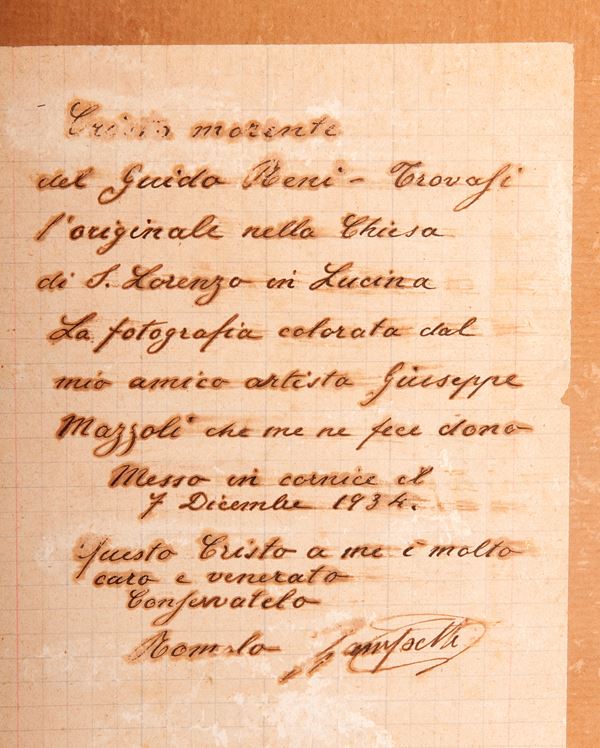 Cristo morente
del Guido Reni - Trovasi
l'originale nella Chiesa
di S. Lorenzo in Lucina
La fotografia colorata dal
mio amico artista Giuseppe
Mazzoli che me ne fece dono
Messo in cornice il
7 Dicembre 1934.
Questo Cristo a me è molto
caro e venerato
Conservatelo
Romolo